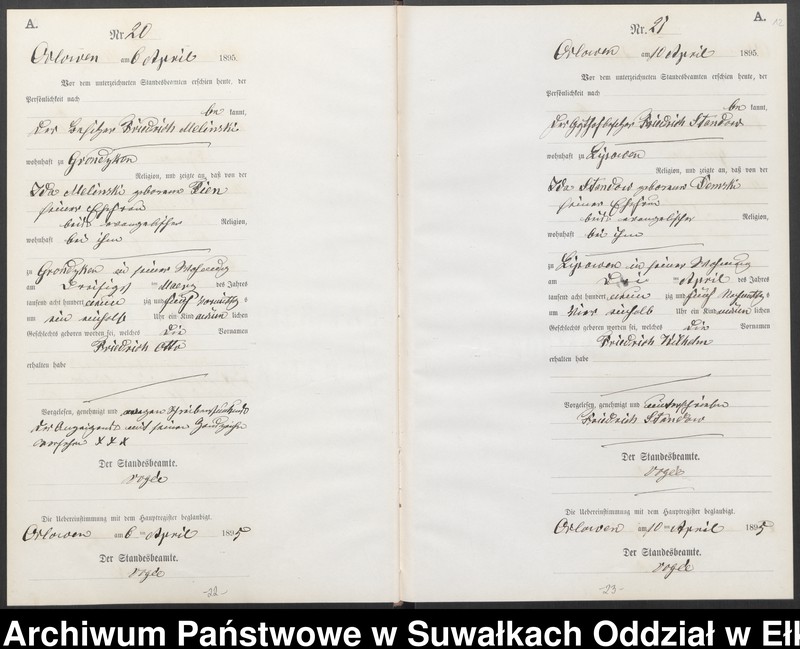 A.
Nr. 20
Orlowen am 6 April 1895.
Vor dem unterzeichneten Standesbeamten erschien heute, der
Persönlichkeit nach
be kannt,
der Besitzer Friedrich Melinski
wohnhaft zu Grondzken
Religion, und zeigte an, daß von der
Ida Melinski geborenen Pien
seiner Ehefrau
beide evangelischer Religion,
wohnhaft bei ihm
zu Grondzken in seiner Wohnung
am dreißigsten Maerz des Jahres
tausend acht hundert neun zig und fünf Vormittags
um ein einhalb Uhr ein Kind männlichen
Geschlechts geboren worden sei, welches die Vornamen
Friedrich Otto
erhalten habe
Vorgelesen, genehmigt und wegen Schreibensunkunde
des Anzeigenden mit seinem Handzeichen
versehen XXX
Der Standesbeamte.
Die Uebereinstimmung mit dem Hauptregister beglaubigt.
Orlowen am 6 ten April 1895
Der Standesbeamte.
-22-
A.
12
Nr. 21
Orlowen am 10 April 1895.
Vor dem unterzeichneten Standesbeamten erschien heute, der
Persönlichkeit nach
be kannt,
der Gasthofbesitzer Friedrich Standow
wohnhaft zu Lysowen
Religion, und zeigte an, daß von der
Ida Standow geborenen
seiner Ehefrau
beide evangelischer Religion,
wohnhaft bei ihm
zu Lysowen in seiner Wohnung
am April des Jahres
tausend acht hundert neun zig und fünf Nachmittags
um vier einhalb Uhr ein Kind männlichen
Geschlechts geboren worden sei, welches die Vornamen
Friedrich Wilhelm
erhalten habe
Vorgelesen, genehmigt und unterschrieben
Friedrich Standow
Der Standesbeamte.
Die Uebereinstimmung mit dem Hauptregister beglaubigt.
Orlowen am 10 ten April 1895
Der Standesbeamte.
-23-
Archiwum Państwowe w Suwałkach Oddział w Ełk